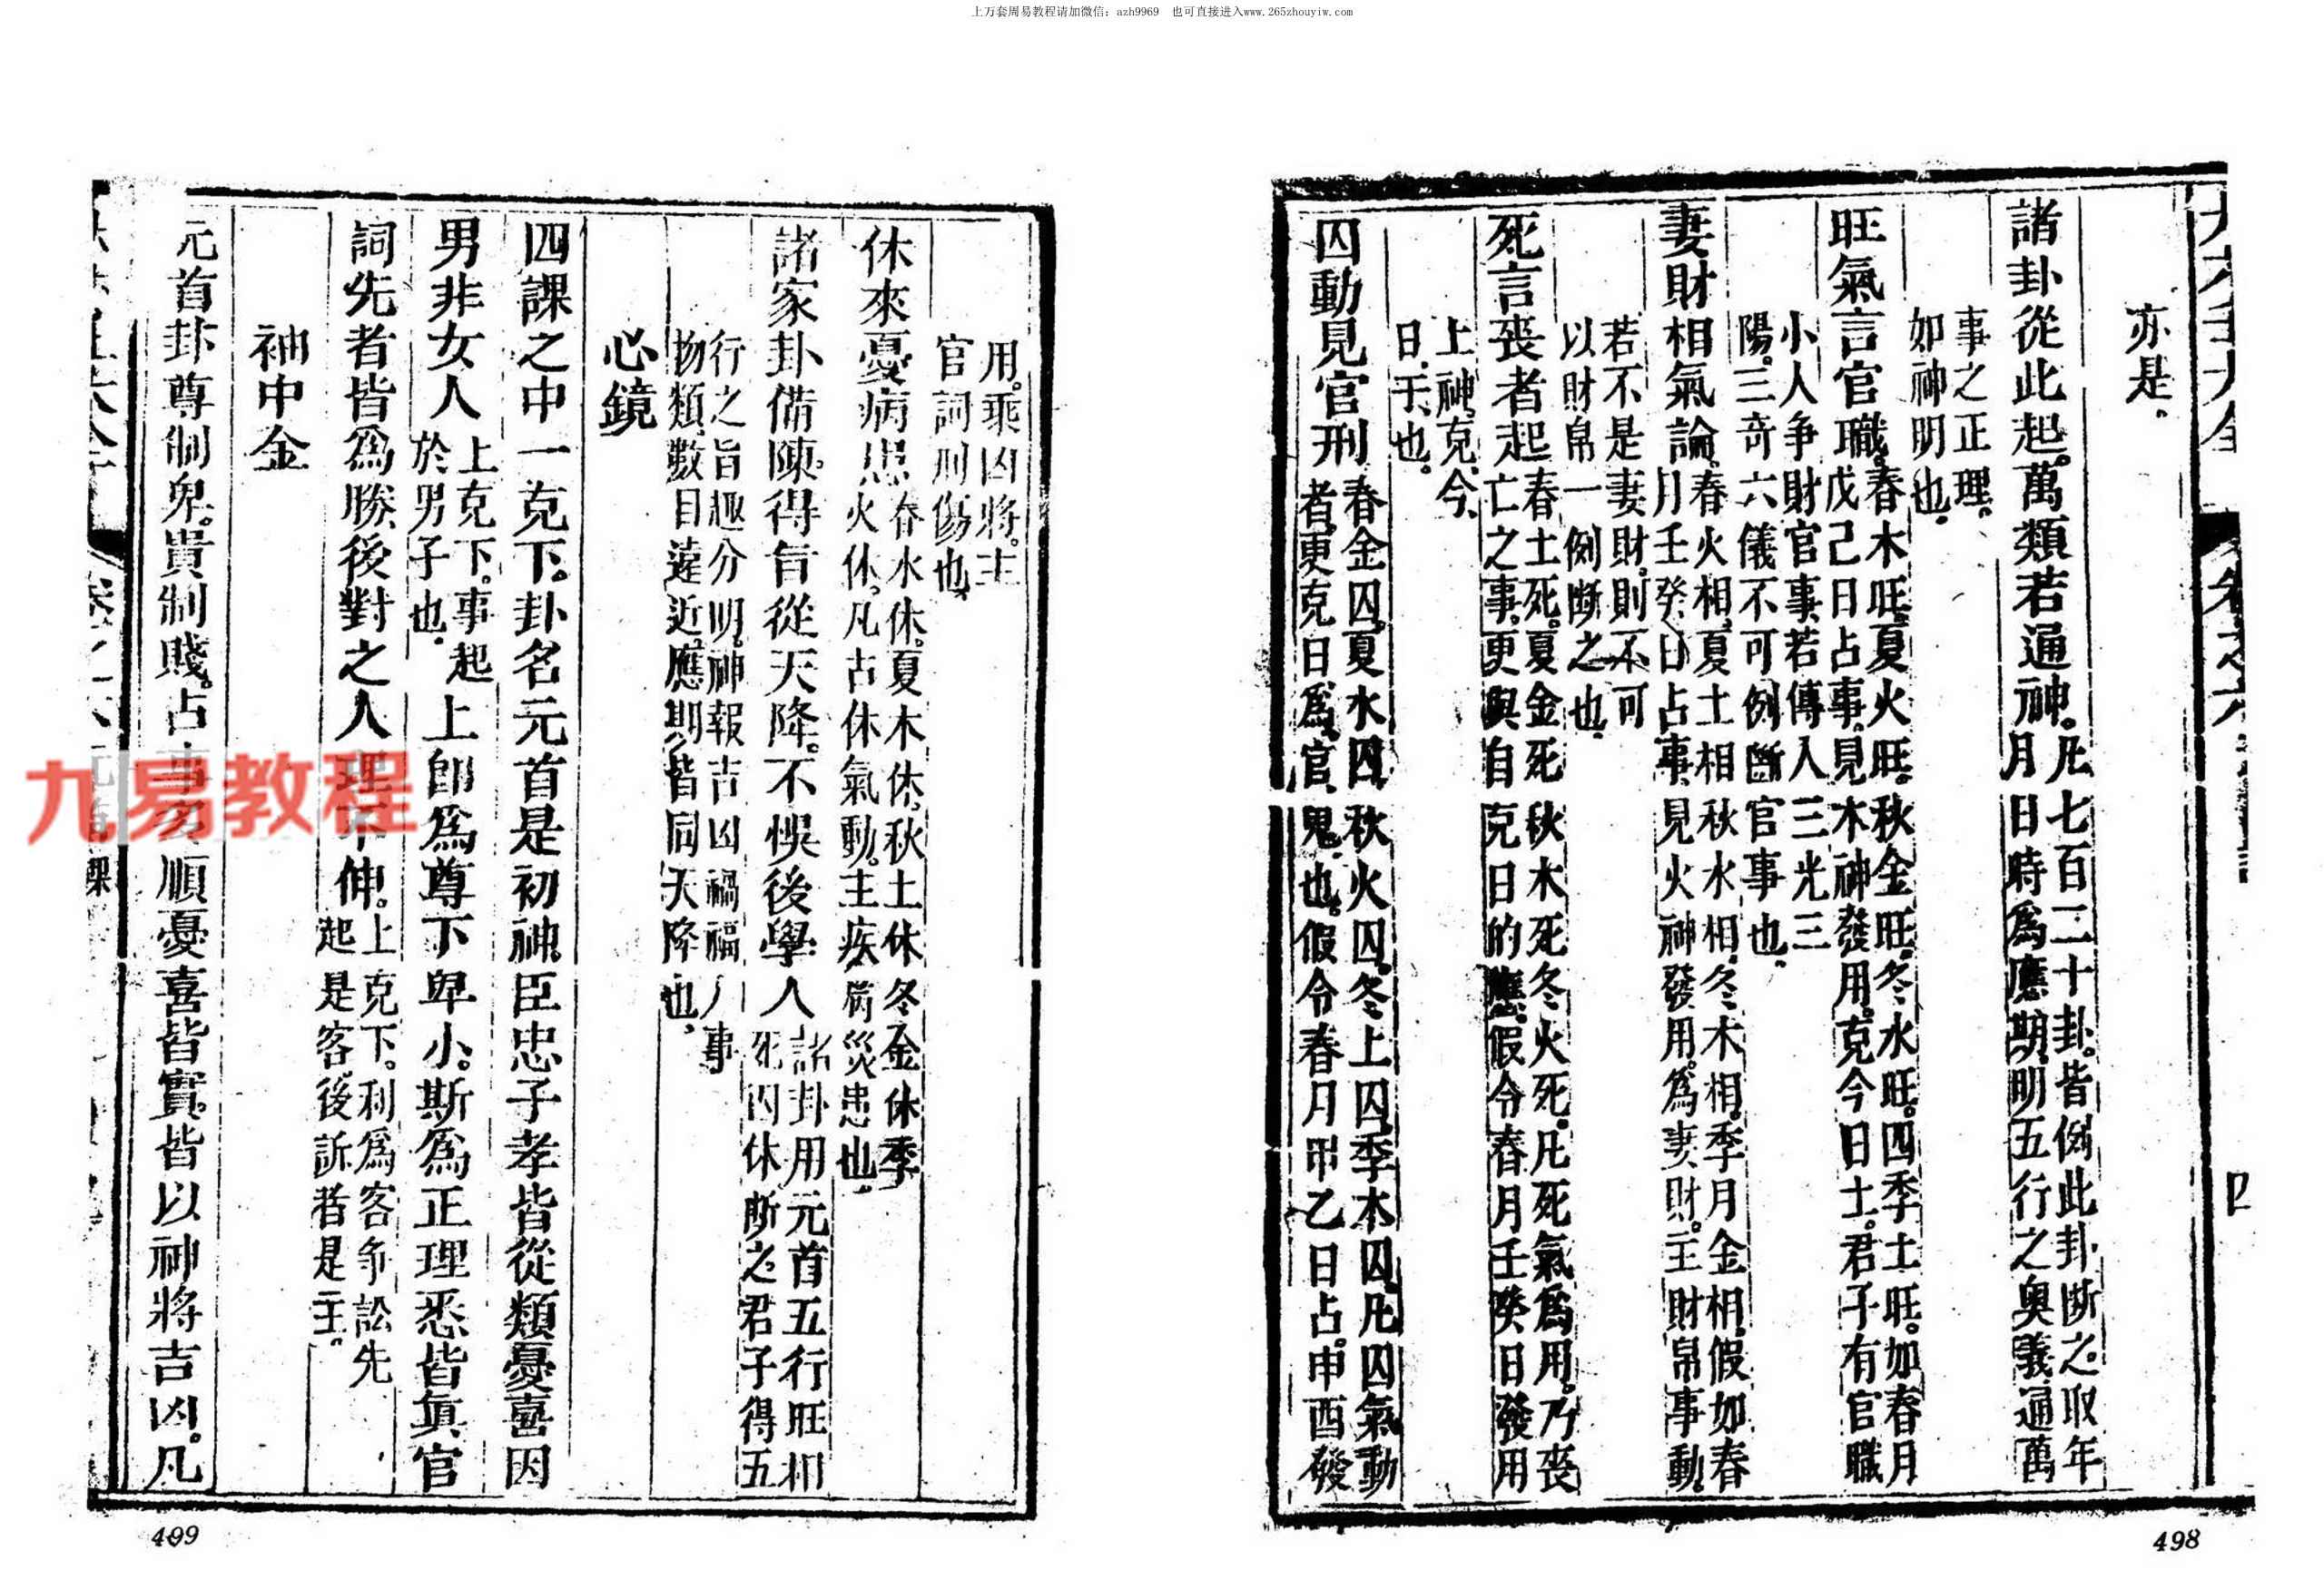 上万套周易教程请加微信：azh9969　也可直接进入www.265zhouyiw.com
亦是。
諸卦從此起。萬類若通神。
凡七百二十卦。皆例此卦斷之。取年
月日時爲應期。明五行之奧義。通萬
事之正理。
如神明也。
旺氣言官職。
春木旺。夏火旺。秋金旺。冬水旺。四季土旺。如春月
戊己日占事。見木神發用。克今日土。君子有官職
小人爭財官事。若傳入三光三
陽。三奇六儀不可例斷官事也。
妻財相氣論。
春火相。夏土相秋水相。冬木相。季月金相。假如春
月壬癸日占事。見火神發用。爲妻財。主財帛事動。
若不是妻財。則不可
以財帛一例斷之也。
死言喪者起
春土死。夏金死秋木死冬火死。凡死氣爲用。乃喪
亡之事。更與自克日的應。假令春月壬癸日發用
上神。克今
日。干也。
囚動見官刑
春金囚。夏水囚秋火囚。冬土囚季木囚。凡囚氣動
者。更克日爲官鬼也。假令春月甲乙日占。申酉發
用。乘凶將。主
官詞刑傷也。
休來憂病患
春水休。夏木休。秋土休冬金休季
火休。凡占休氣動。主疾病災患也。
諸家卦備陳。得旨從天降。不悞後學人
諸卦用元首五行旺相
死囚休斷之。君子得五
行之旨趣分明。神報吉凶禍福人事
物類。數目遠近。應期皆同天降也。
心鏡
四課之中一克下。卦名元首是初神。臣忠子孝皆從類憂喜因
男非女人
上克下。事起
於男子也。
上卽爲尊下卑小。斯爲正理悉皆眞官
詞先者皆爲勝後對之人理不伸。
上克下。利爲客爭訟先
起是客。後訴者是主。
袖中金
元首卦尊制卑。貴制賤。占事多順憂喜皆實。皆以神將吉凶。凡
九易教程
卷之六
課
四
499
498